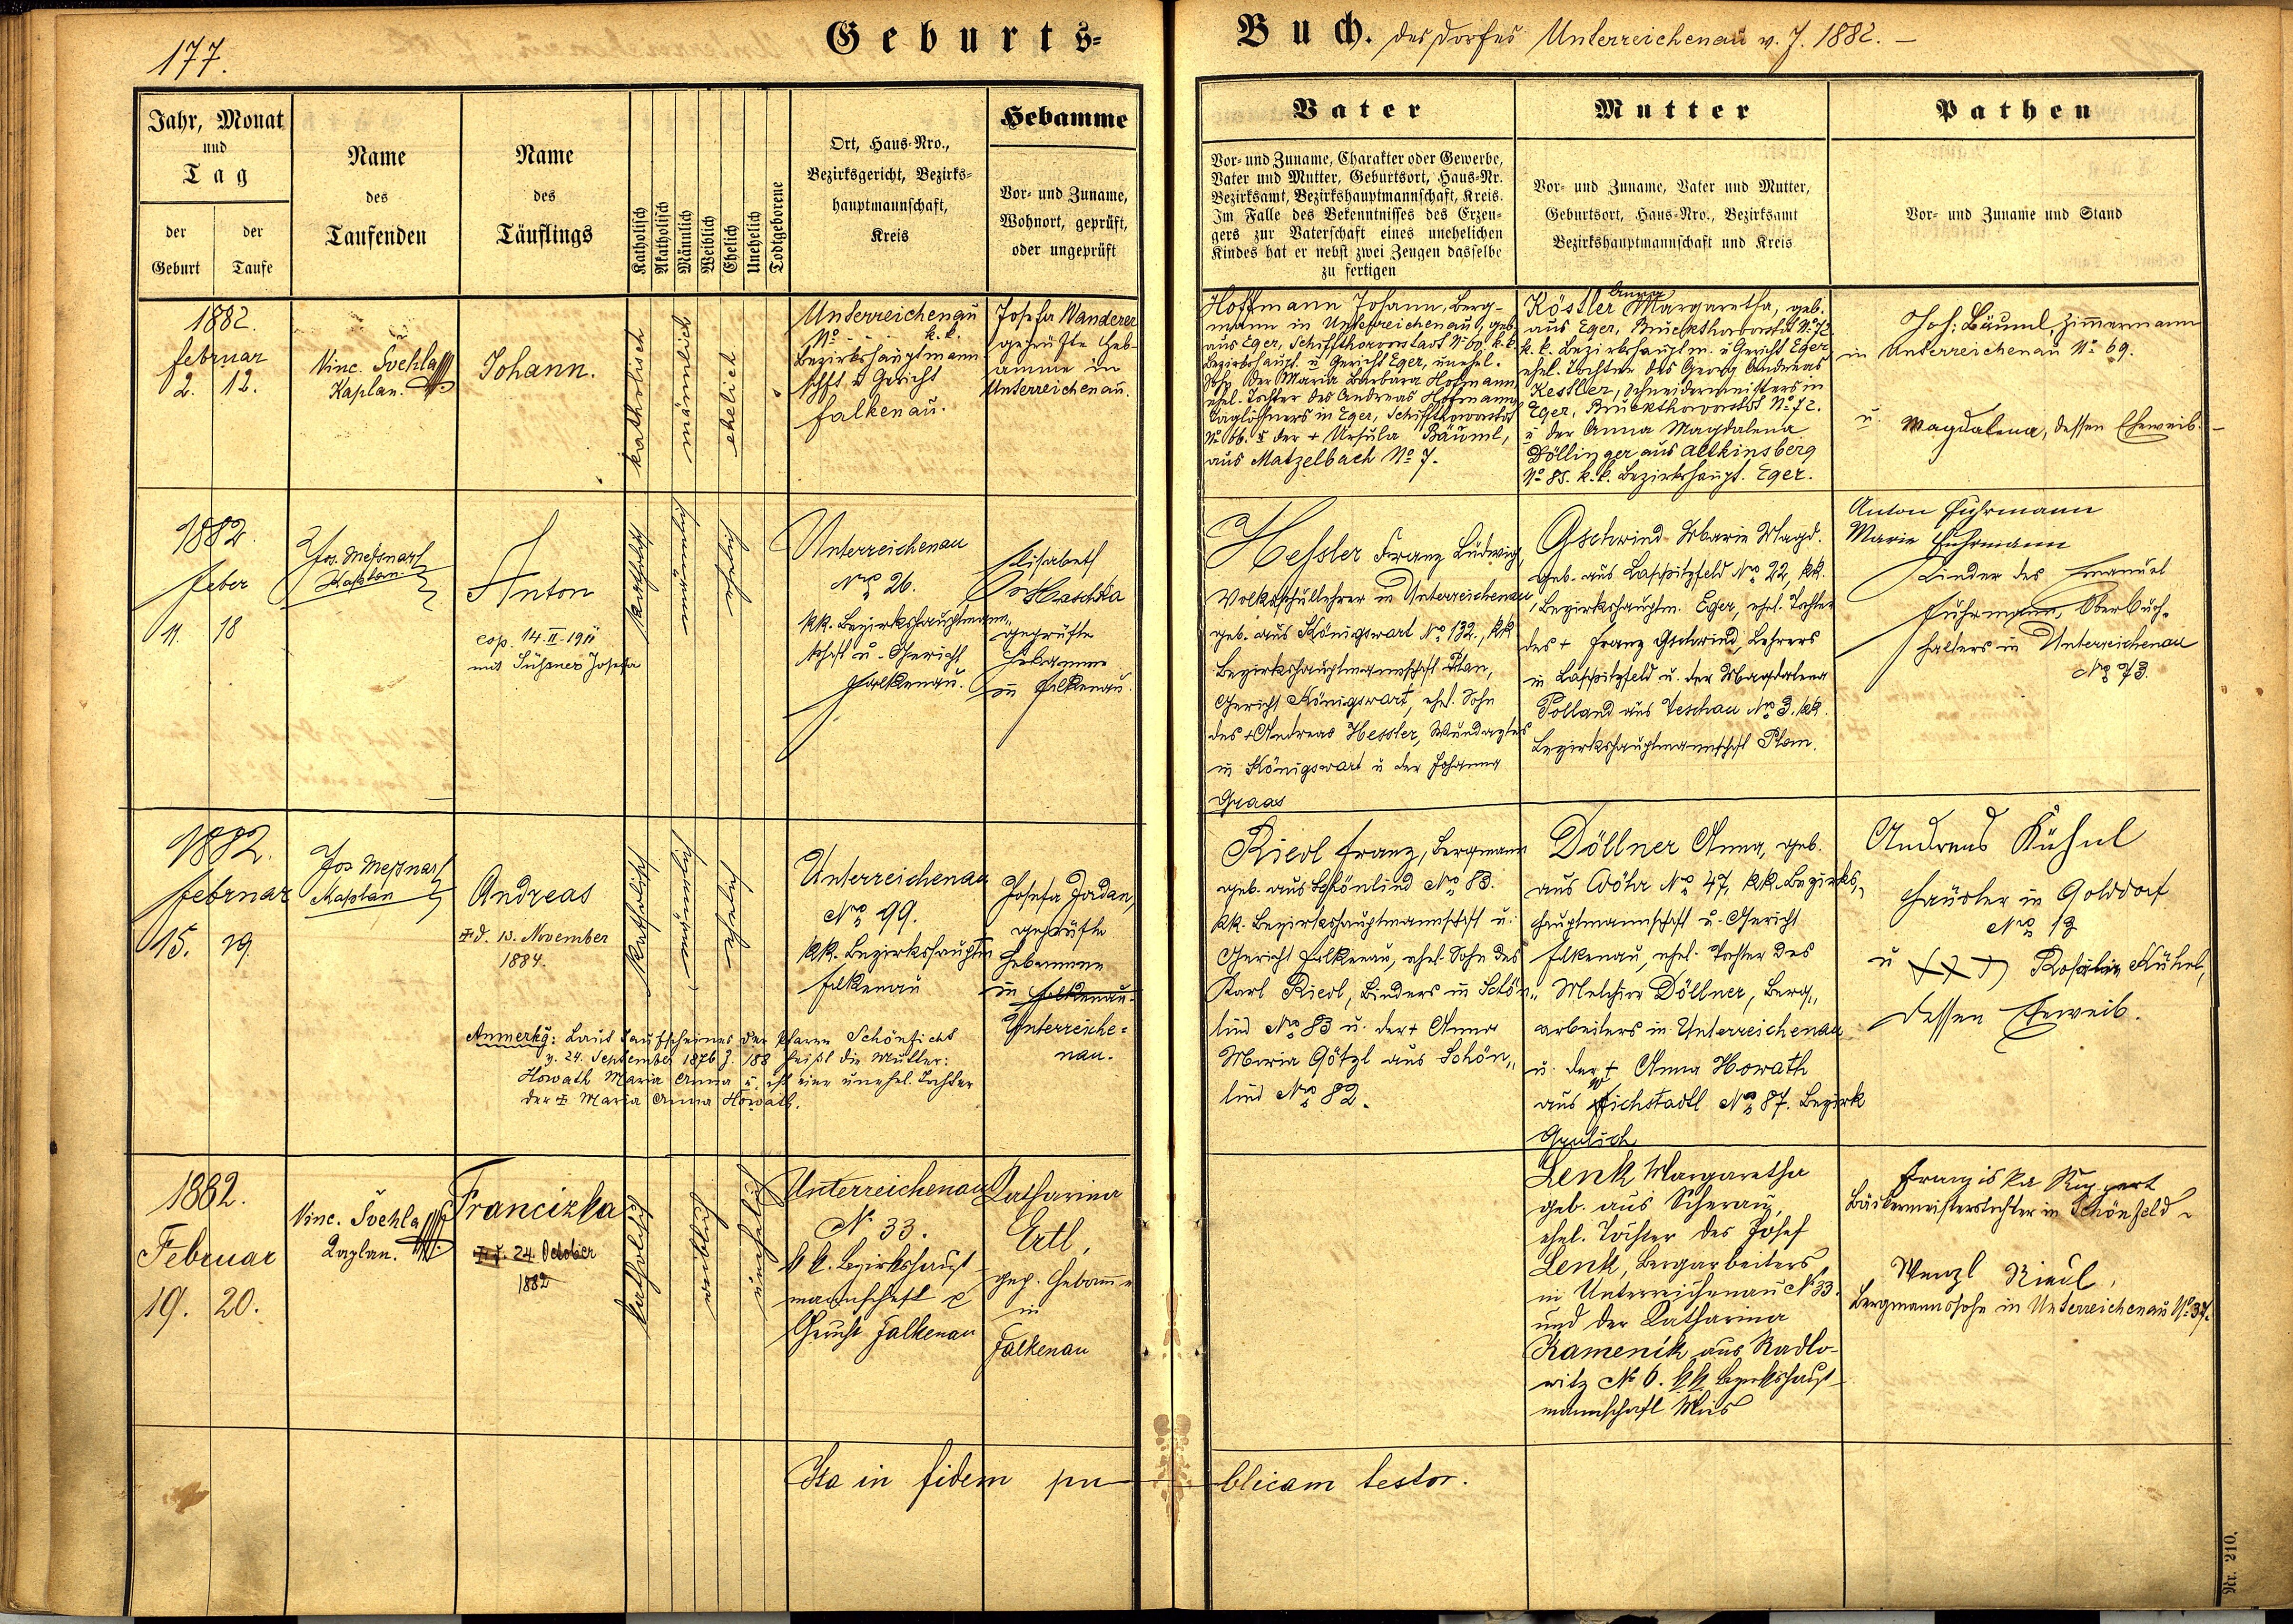 177.
Geburts-
Buch. des Dorfes Unterreichenau v. J. 1882. –
Jahr, Monat
und
Tag
der
Geburt
der
Taufe
Name
des
Taufenden
Name
des
Täuflings
Katholisch
Akatholisch
Männlich
Weiblich
Ehelich
Unehelich
Todtgeborene
Ort, Haus-Nro.,
Bezirksgericht, Bezirks-
hauptmannschaft,
Kreis
Hebamme
Vor- und Zuname,
Wohnort, geprüft,
oder ungeprüft
Vater
Vor- und Zuname, Charakter oder Gewerbe,
Vater und Mutter, Geburtsort, Haus-Nr.
Bezirksamt, Bezirkshauptmannschaft, Kreis.
Im Falle des Bekenntnisses des Erzeu-
gers zur Vaterschaft eines unehelichen
Kindes hat er nebst zwei Zeugen dasselbe
zu fertigen
Mutter
Vor- und Zuname, Vater und Mutter,
Geburtsort, Haus-Nro., Bezirksamt
Bezirkshauptmannschaft und Kreis
Pathen
Vor- und Zuname und Stand
1882.
februar
2. 12.
Vinc. Švehla
Kaplan.
Johann.
katholisch
männlich
ehelich
Unterreichenau
No . . . k. k.
Bezirkshauptmann-
schft u Gericht
falkenau.
Josefa Wanderer
geprüfte Heb-
amme in
Unterreichenau.
Hoffmann Johann, Berg-
mann in Unterreichenau, geb.
aus Eger, Schiffthorvorstadt No 60, k. k.
Bezirkshaupt. u Gericht Eger, unehel.
Sohn der Maria Barbara Hofmann
ehel. Tochter des Andreas Hofmann
Taglöhners in Eger, Schiffthorvorstadt
No 66. u der + Ursula Bäuml,
aus Matzelbach No 7.
Anna
Köstler Margaretha, geb.
aus Eger, Bruckthorvorstdt No 72
k. k. Bezirkshauptm. u Gericht Eger
ehel. Tochter des Georg Andreas
Kestler, Schneidermeisters in
Eger, Bruckthorvorstdt No 72.
u der Anna Magdalena
Döllinger aus Altkinsberg
No 85. k. k. Bezirkshaupt. Eger.
Joh: Bäuml, Zimmermann
in Unterreichenau No 69.
u. Magdalena, dessen Eheweib. –
1882.
feber
11. 18
Jos. Mešnar
Kaplan
Anton
cop. 14. II - 1911
mit Süßner Josefa
katholisch
männlich
ehelich
Unterreichenau
Nro 26.
kk. Bezirkshauptmann„
schaft u. Gericht
Falkenau.
Elisabeth
Haschka
geprüfte
Hebamme
in Falkenau.
Hessler Franz Ludwig,
Volksschullehrer in Unterreichenau,
geb. aus Königswart No 132., kk
Bezirkshauptmannschaft Plan,
Gericht Königswart, ehel. Sohn
des + Andreas Hessler, Wundarztes
in Königswart u der Johanna
Graas
Gschwind Marie Magd.
geb. aus Lapitzfeld No 22, kk.
Bezirkshauptm. Eger, ehel. Tochter
des + Franz Gschwind, Lehrers
in Lapitzfeld u. der Magdalena
Polland aus Teschau No 3. kk.
Bezirkshauptmannschaft Plan.
Anton Fuhrmann
Marie Fuhrmann
Kinder des Emanuel
Fuhrmann, Oberbuch„
halters in Unterreichenau
No 73.
1882.
februar
15. 19.
Jos Mešnar
Kaplan
Andreas
d. 13. November
1884.
katholisch
männlich
ehelich
Unterreichenau
Nro 99.
kk. Bezirkshauptm
Falkenau
Josefa Jordan,
geprüfte
Hebamme
in Falkenau.
Unterreiche=
nau.
Anmerkg: Laut Taufscheines der Pfarre Schönficht
v. 24. September 1876 Z 188 heißt die Mutter:
Howath Maria Anna u. ist eine unehel. Tochter
der Maria Anna Howath.
Riedl Franz, Bergmann
geb. aus Schönlind No 83.
kk. Bezirkshauptmannschaft u.
Gericht Falkenau, ehel. Sohn des
Karl Riedl, Binders in Schön„
lind No 83 u. der + Anna
Maria Götzl aus Schön„
lind No 82.
Döllner Anna, geb.
aus Wöhr No 47, kk. Bezirks„
hauptmannschaft u. Gericht
Falkenau, ehel. Tochter des
Melchior Döllner, Berg„
arbeiters in Unterreichenau
u. der + Anna Howath
aus Fichstadtl No 87. Bezirk
Andreas Kühnl
Häusler in Golddorf
No 12
u Rosalia Kühnl,
dessen Eheweib.
1882.
Februar
19. 20.
Vinc. Švehla
Kaplan.
Francizka
24. October
1882
katholisch
weiblich
unehelich
Unterreichenau
No 33.
k k. Bezirkshaupt-
mannschaft &
Gericht Falkenau
Katharina
Ertl,
gep. Hebamme
in
Falkenau
Lenk Margaretha
geb. aus Scherau,
ehel. Tochter des Josef
Lenk, Bergarbeiters
in Unterreichenau No 33.
und der Katharina
Kamenik aus Radlo-
witz No 6. kk Bezirkshaupt-
mannschaft Mies
Franziska Ruppert
Bäckermeisterstochter in Schönfeld
Wenzl Riedl,
Bergmannssohn in Unterreichenau No 37.
Ita in fidem pu-
blicam testor.
Nr. 210.